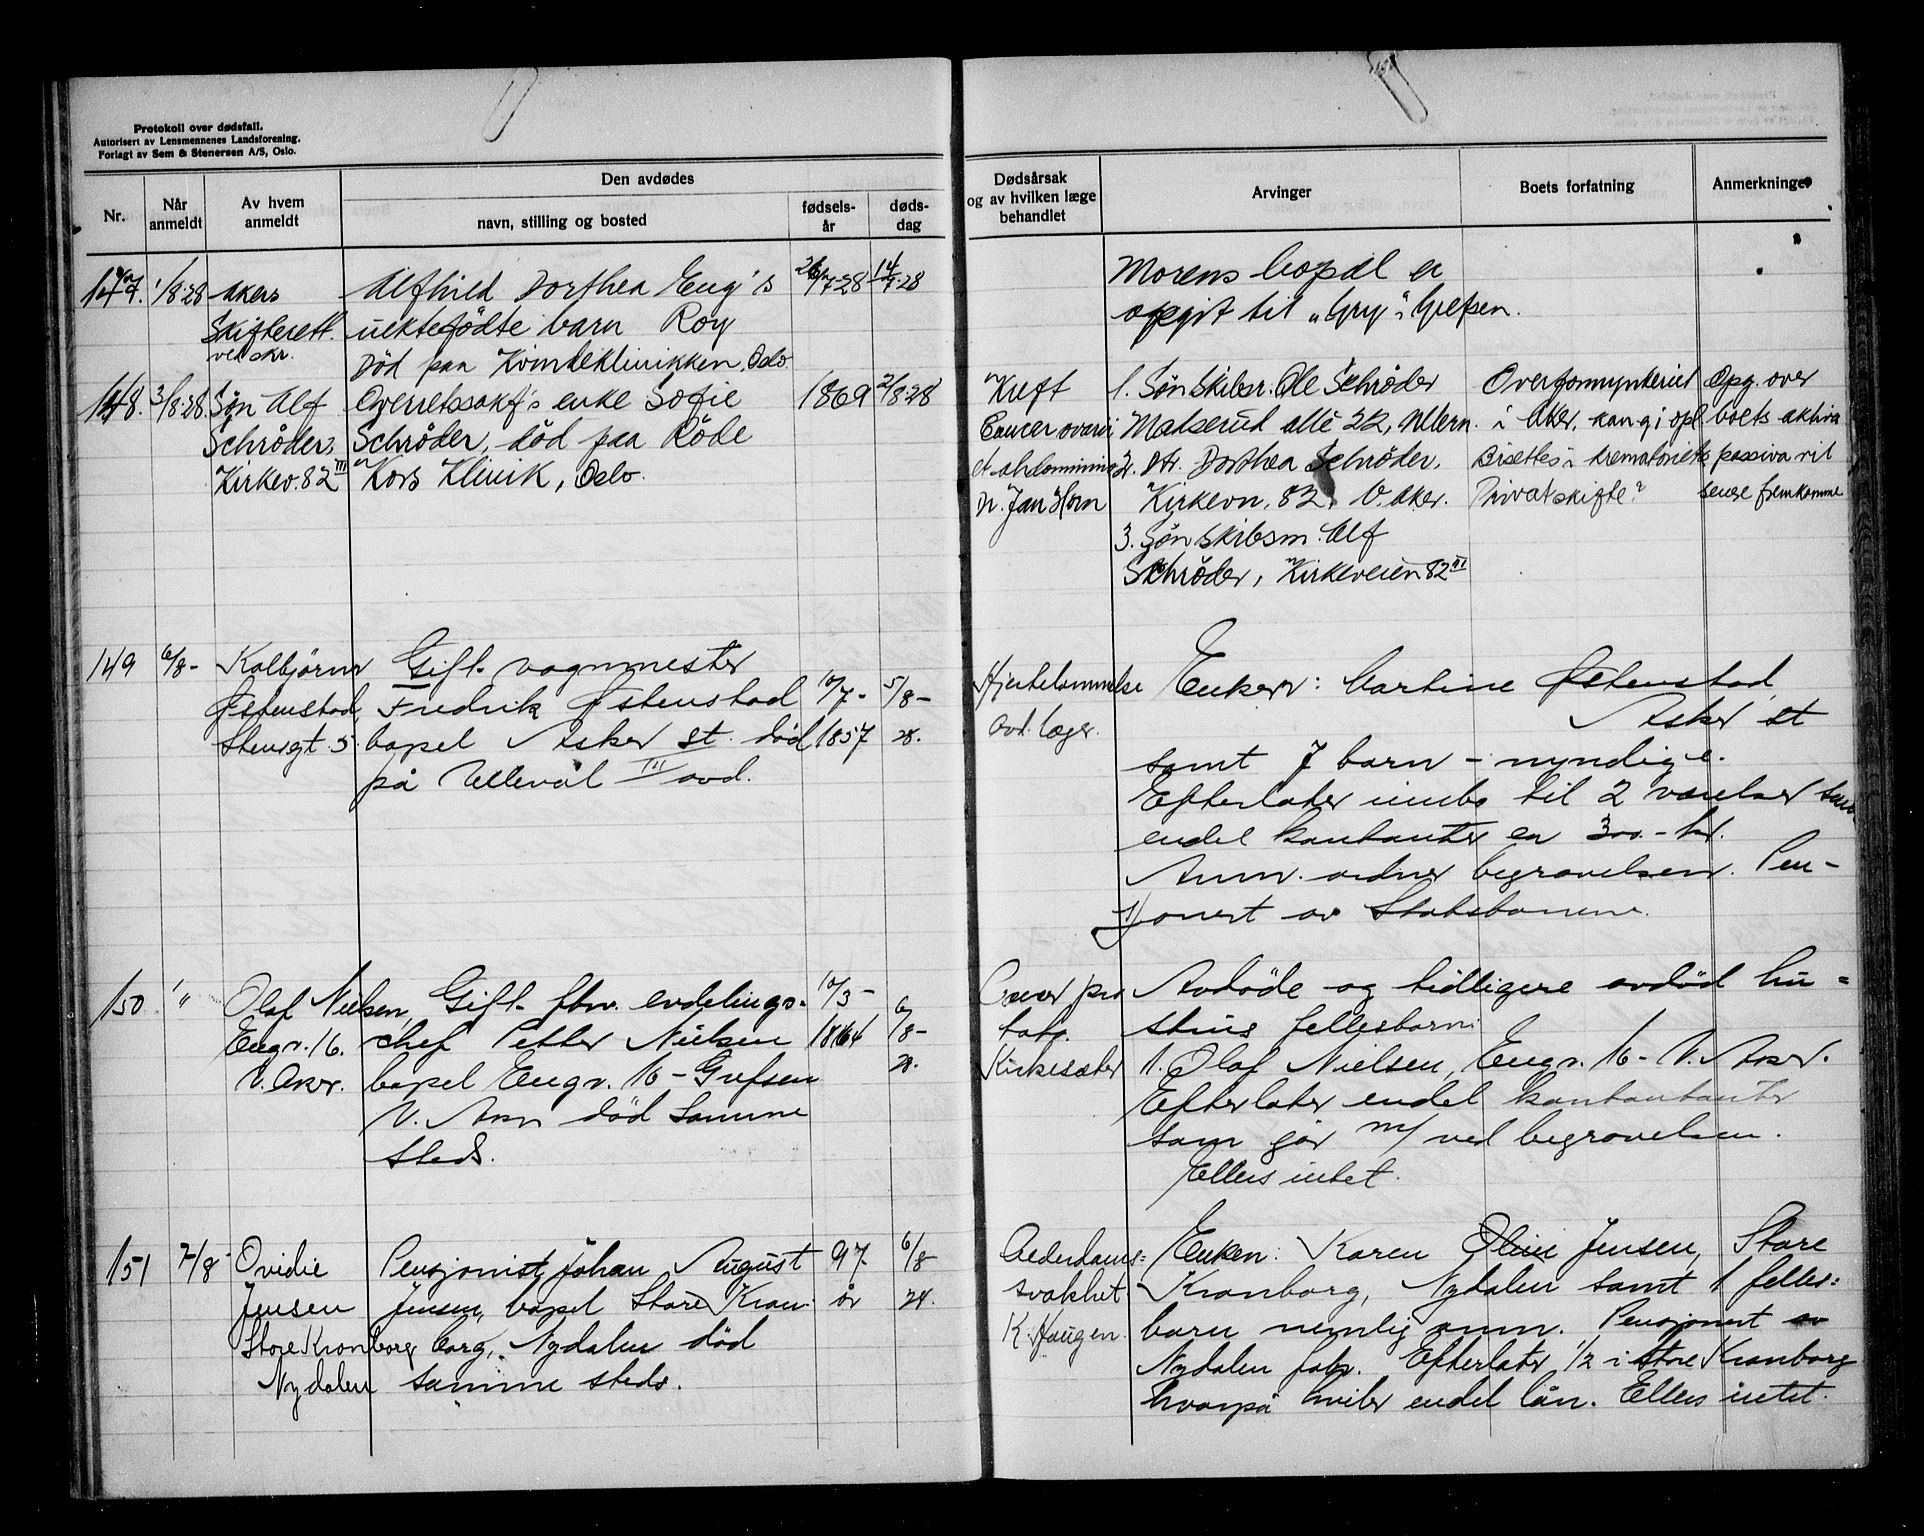 Protokoll over dødsfall.
Autorisert av Lensmennenes Landsforening.
Forlagt av Sem & Stenersen A/S, Oslo.
Nr.
Når
anmeldt
Av hvem
anmeldt
Den avdødes
navn, stilling og bosted
fødsels-
år
døds-
dag
Dødsårsak
og av hvilken læge
behandlet
Arvinger
Boets forfatning
Anmerkninger
147. 1/8.28
Akers
Skifterett
ved skr.
Alfhild Dorthea Eng's
uektefödte barn Roy
Död paa Kvindeklinikken, Oslo
26/7 28
14/7.28
Morens bopæl er
opgit til "Gry", Grefsen.
148. 3/8.28
Søn Alf
Schrøder,
Kirkev. 82 III
Overretssakf's enke Sofie
Schrøder, död paa Röde
Kors Klinik, Oslo.
1869
2/8.28
Kreft
Cancer ovarii
et abdominis
Dr. Jan Horn
1. Søn Skibsr. Ole Schrøder
Madserud allé 22, Ullern.
2. Dtr. Dorthea Schrøder,
Kirkevn. 82, V. Aker.
3. Søn skibsm. Alf
Schrøder, Kirkeveien 82 III
Overformynderiet
i Aker, kan gi opl.
Bisettes i krematoriet
Privatskifte?
Opg. over
boets aktiva
& passiva vil
senere fremkomme
149 6/8 -
Kolbjørn
Østenstad,
Stensgt. 5
Gift vognmester
Fredrik Østenstad
bopel Asker st. död
på Ullevål III avd.
10/7 -
1857
5/8 -
28.
Hjertelammelse
avd. læger.
Enken: Martine Østenstad
Asker st
samt 7 barn - myndige.
Efterlater innbo til 2 værelser samt
endel kontanter ca 300.- kr.
Anm. ordner begravelsen. Pen-
sjonert av Statsbanene.
150. "
Olaf Nielsen,
Engv. 16.
V. Aker.
Gift fhv. avdelings-
chef Petter Nielsen
bopel Engv. 16 - Grefsen
V. Aker död samme
steds.
10/3 -
1864
6/8 -
28.
Cancer pro
Kirkesæter
Avdöde og tidligere avdöd hu =
strus fellesbarn:
1. Olaf Nielsen, Engv. 16 - V. Aker.
Efterlater endel kontantanter
som går m/ ved begravelsen.
Ellers intet.
151 7/8
Ovidie
Jensen
Store Kronborg
Nydalen
Pensjonist Johan August
Jensen, bopel Store Kron-
borg, Nydalen död
samme steds.
97
år
6/8
28.
Alderdoms=
svakhet
K. Haugen.
Enken: Karen Oline Jensen, Store
Kronborg, Nydalen samt 1 felles=
barn nemlig anm. Pensjonert av
Nydalen fabr. Efterlater 1/2 i Store Kronborg
hvorpå hviler endel lån. Ellers intet.